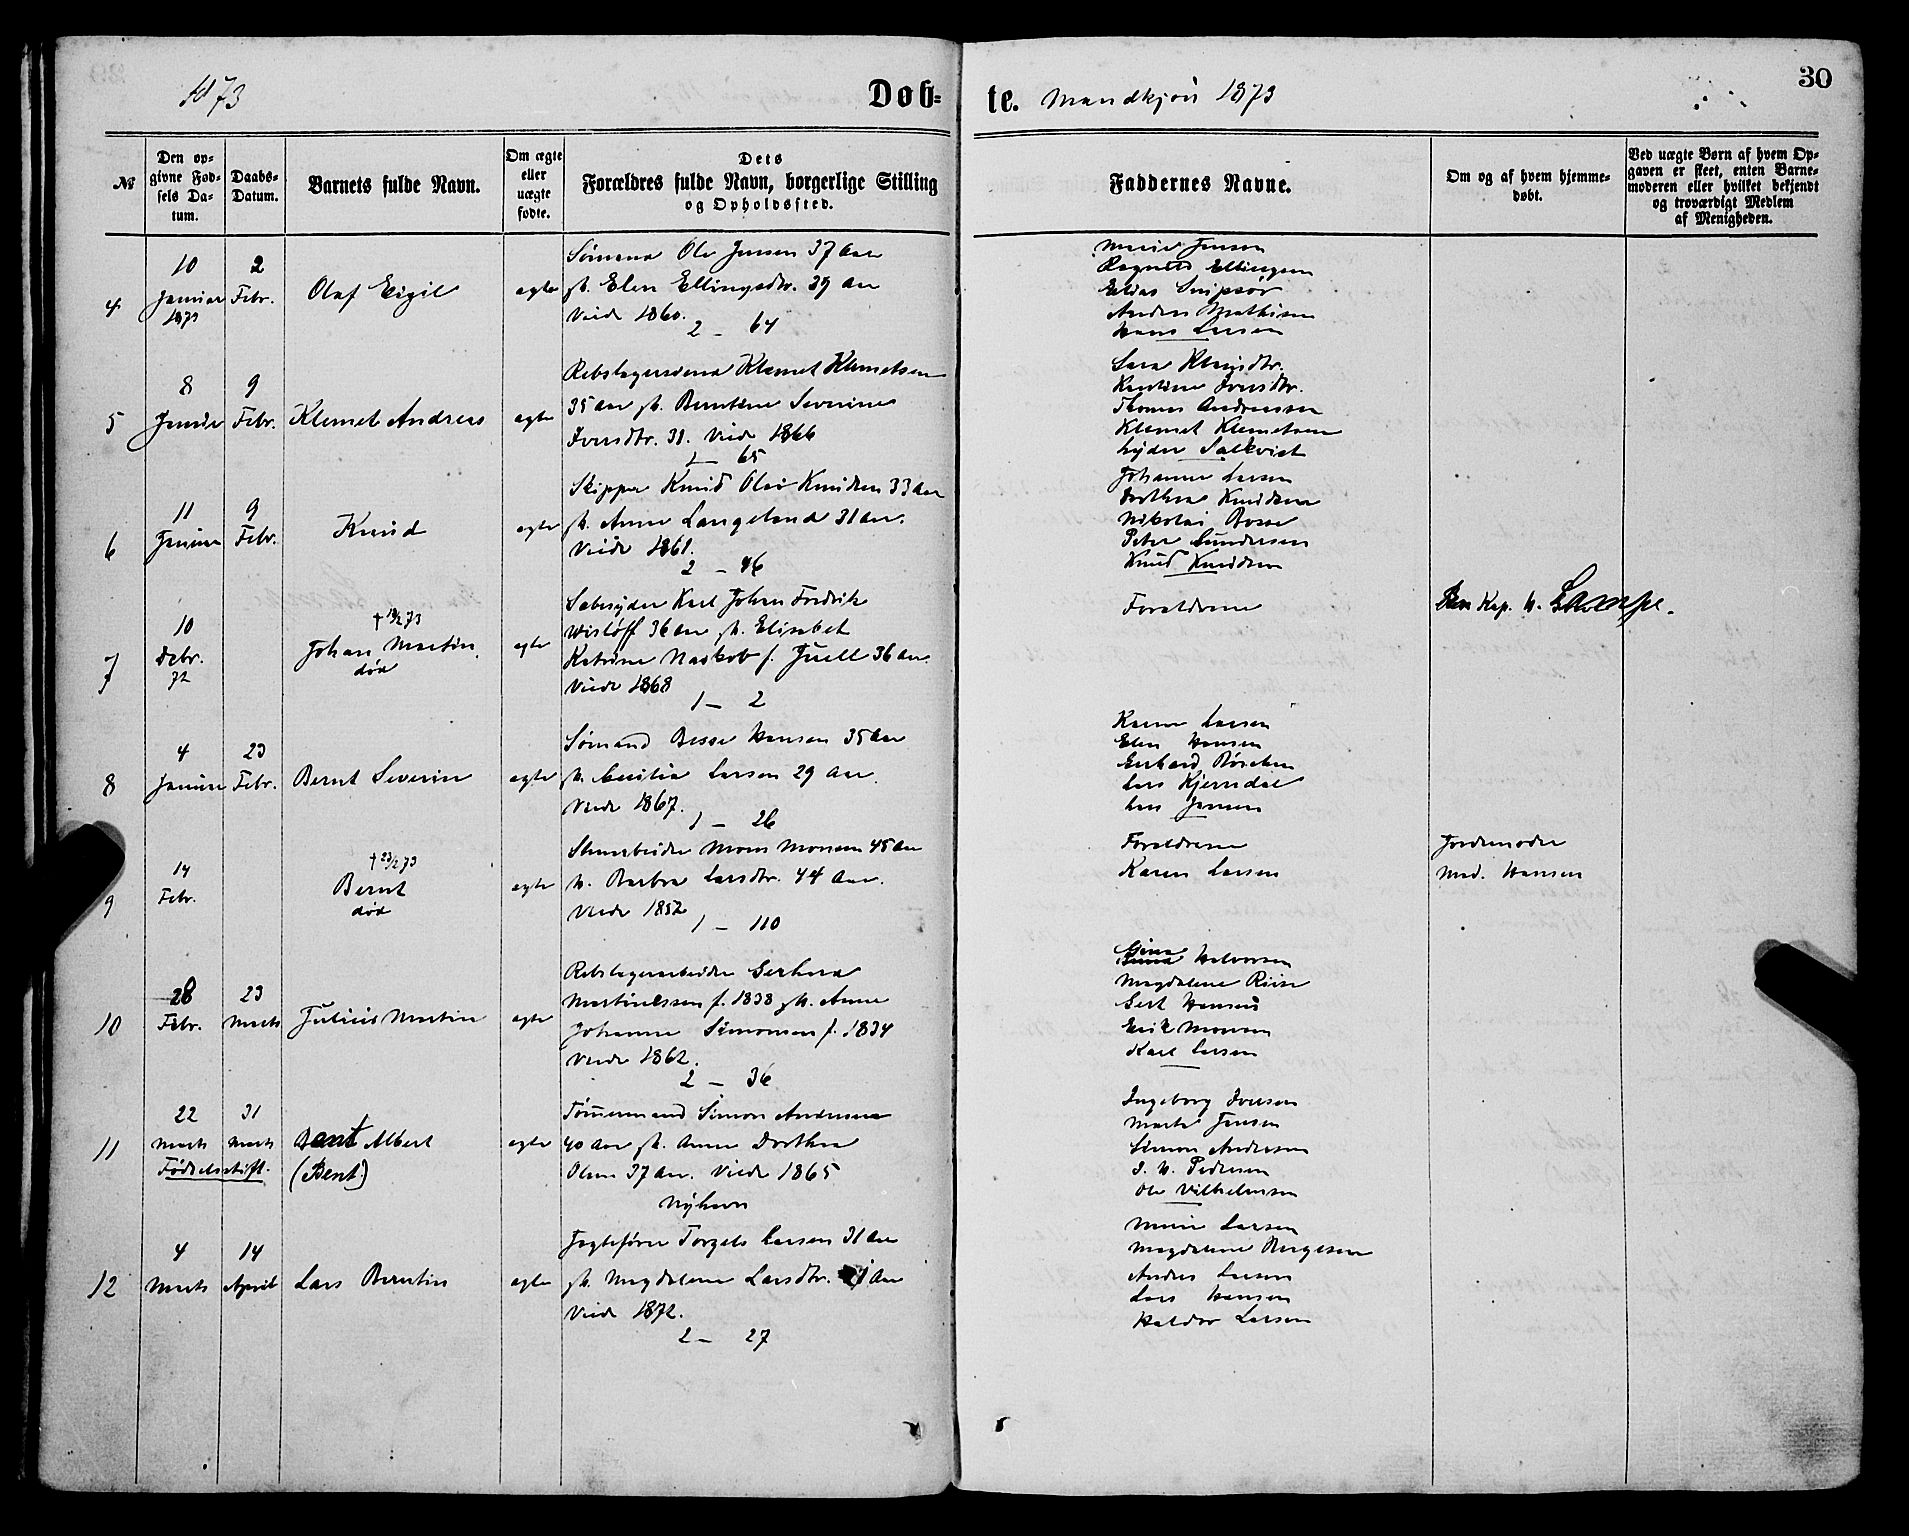 1873
Døb=
te. Mandkjøn 1873
30
№
Den op=
givne Fød=
sels Da=
tum.
Daabs=
Datum.
Barnets fulde Navn.
Om ægte
eller
uægte
fødte.
Dets
Forældres fulde Navn, borgerlige Stilling
og Opholdssted.
Faddernes Navne.
Om og af hvem hjemme=
døbt.
Ved uægte Børn af hvem Op=
gaven er skeet, enten Barne=
moderen eller hvilket bekjendt
og troværdigt Medlem
af Menigheden.
4
10
Januar
1873
2
Febr.
Olaf Eigil
ægte
Sømand Ole Jensen 37 Aar
gh. Elen Ellingsdtr. 39 Aar
Viede 1860.
2 - 64
Marie Jensen
Ellingsen
Elias
Andreas Mathisen
Hans Larsen
5
8
9
Febr.
Klemet Andreas
ægte
Klemet Klemetsen
35 Aar gh. Berntine Severine
Iversdtr. 31. Viede 1866
1 - 65
Sara
Iversdtr.
Thomas Andreassen
Klemet Klemetsen
Lyder Salkvist
6
11
Januar
9
Febr.
Knud
ægte
Skipper Knud Olai Knudsen 33 Aar
gh. Anne Langeland 31 Aar.
Viede 1861.
2 - 46
Johanne Larsen
Dorthea Knudsen
Nikolai Bosse
Peter Gundersen
Knud Knudsen
7
10
Debr.
72
† 18/2 73
Johan Martin
død
ægte
Sæbesyder Karl Johan Fredrik
Wisløff 36 Aar gh. Elisabet
Katrine f. Juell 36 Aar.
Viede 1868
1 - 2
Forældrene
Kap. H. Lampe.
8
4
Januar
23
Febr.
Bernt Severin
ægte
Sømand Besse Hansen 35 Aar
gh. Cecilia Larsen 29 Aar.
Viede 1867.
1 - 26
Karen Larsen
Elen Hansen
Gerhard
Lars Kjerrdal
Lars Jansen
9
14
Febr.
† 23/2 73
Bernt
død
ægte
Mons Monsen 45 Aar
h. Barbra Larsdtr. 44 Aar.
Viede 1852
1 - 110
Forældrene
Karen Larsen
Jordemoder
Mad. Hansen
10
28
Febr.
23
Marts
Julius Martin
ægte
Rebslagerarbeider Gerhard
Martinussen f. 1838 gh. Anne
Johanne Simonsen f. 1834
Viede 1862.
2 - 36
Gina
Halvorsen
Magdalene Riise
Gert Hansen
Erik Monsen
Karl Larsen
11
22
Marts
Fødselsstift.
31
Marts
Bent Albert
(Bent)
ægte
Tømmermand Simon Andersen
40 Aar gh. Anne Dorthea
Olsen 37 Aar. Viede 1865
Nyhavn
Ingeborg Iversen
Marta Jensen
Simon Andersen
J. H. Pedersen
Ole Vilhelmsen
12
4
Marts
14
April
Lars Berntin
ægte
Jagtefører Torgels Larsen 31 Aar
gh. Magdalene Larsdtr. Aar
Viede 1872.
2 - 27
Marie Larsen
Magdalene Børgesen
Andreas Larsen
Lars Hansen
Haldor Larsen